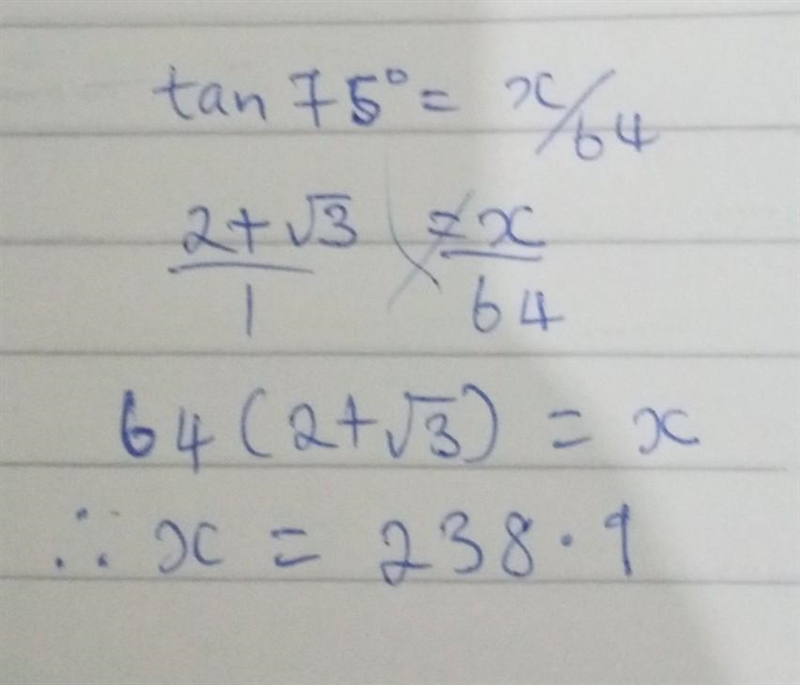 tan 75° = x/64
2+√3/1 = x/64
64(2+√3) = x
∴ x = 238.9